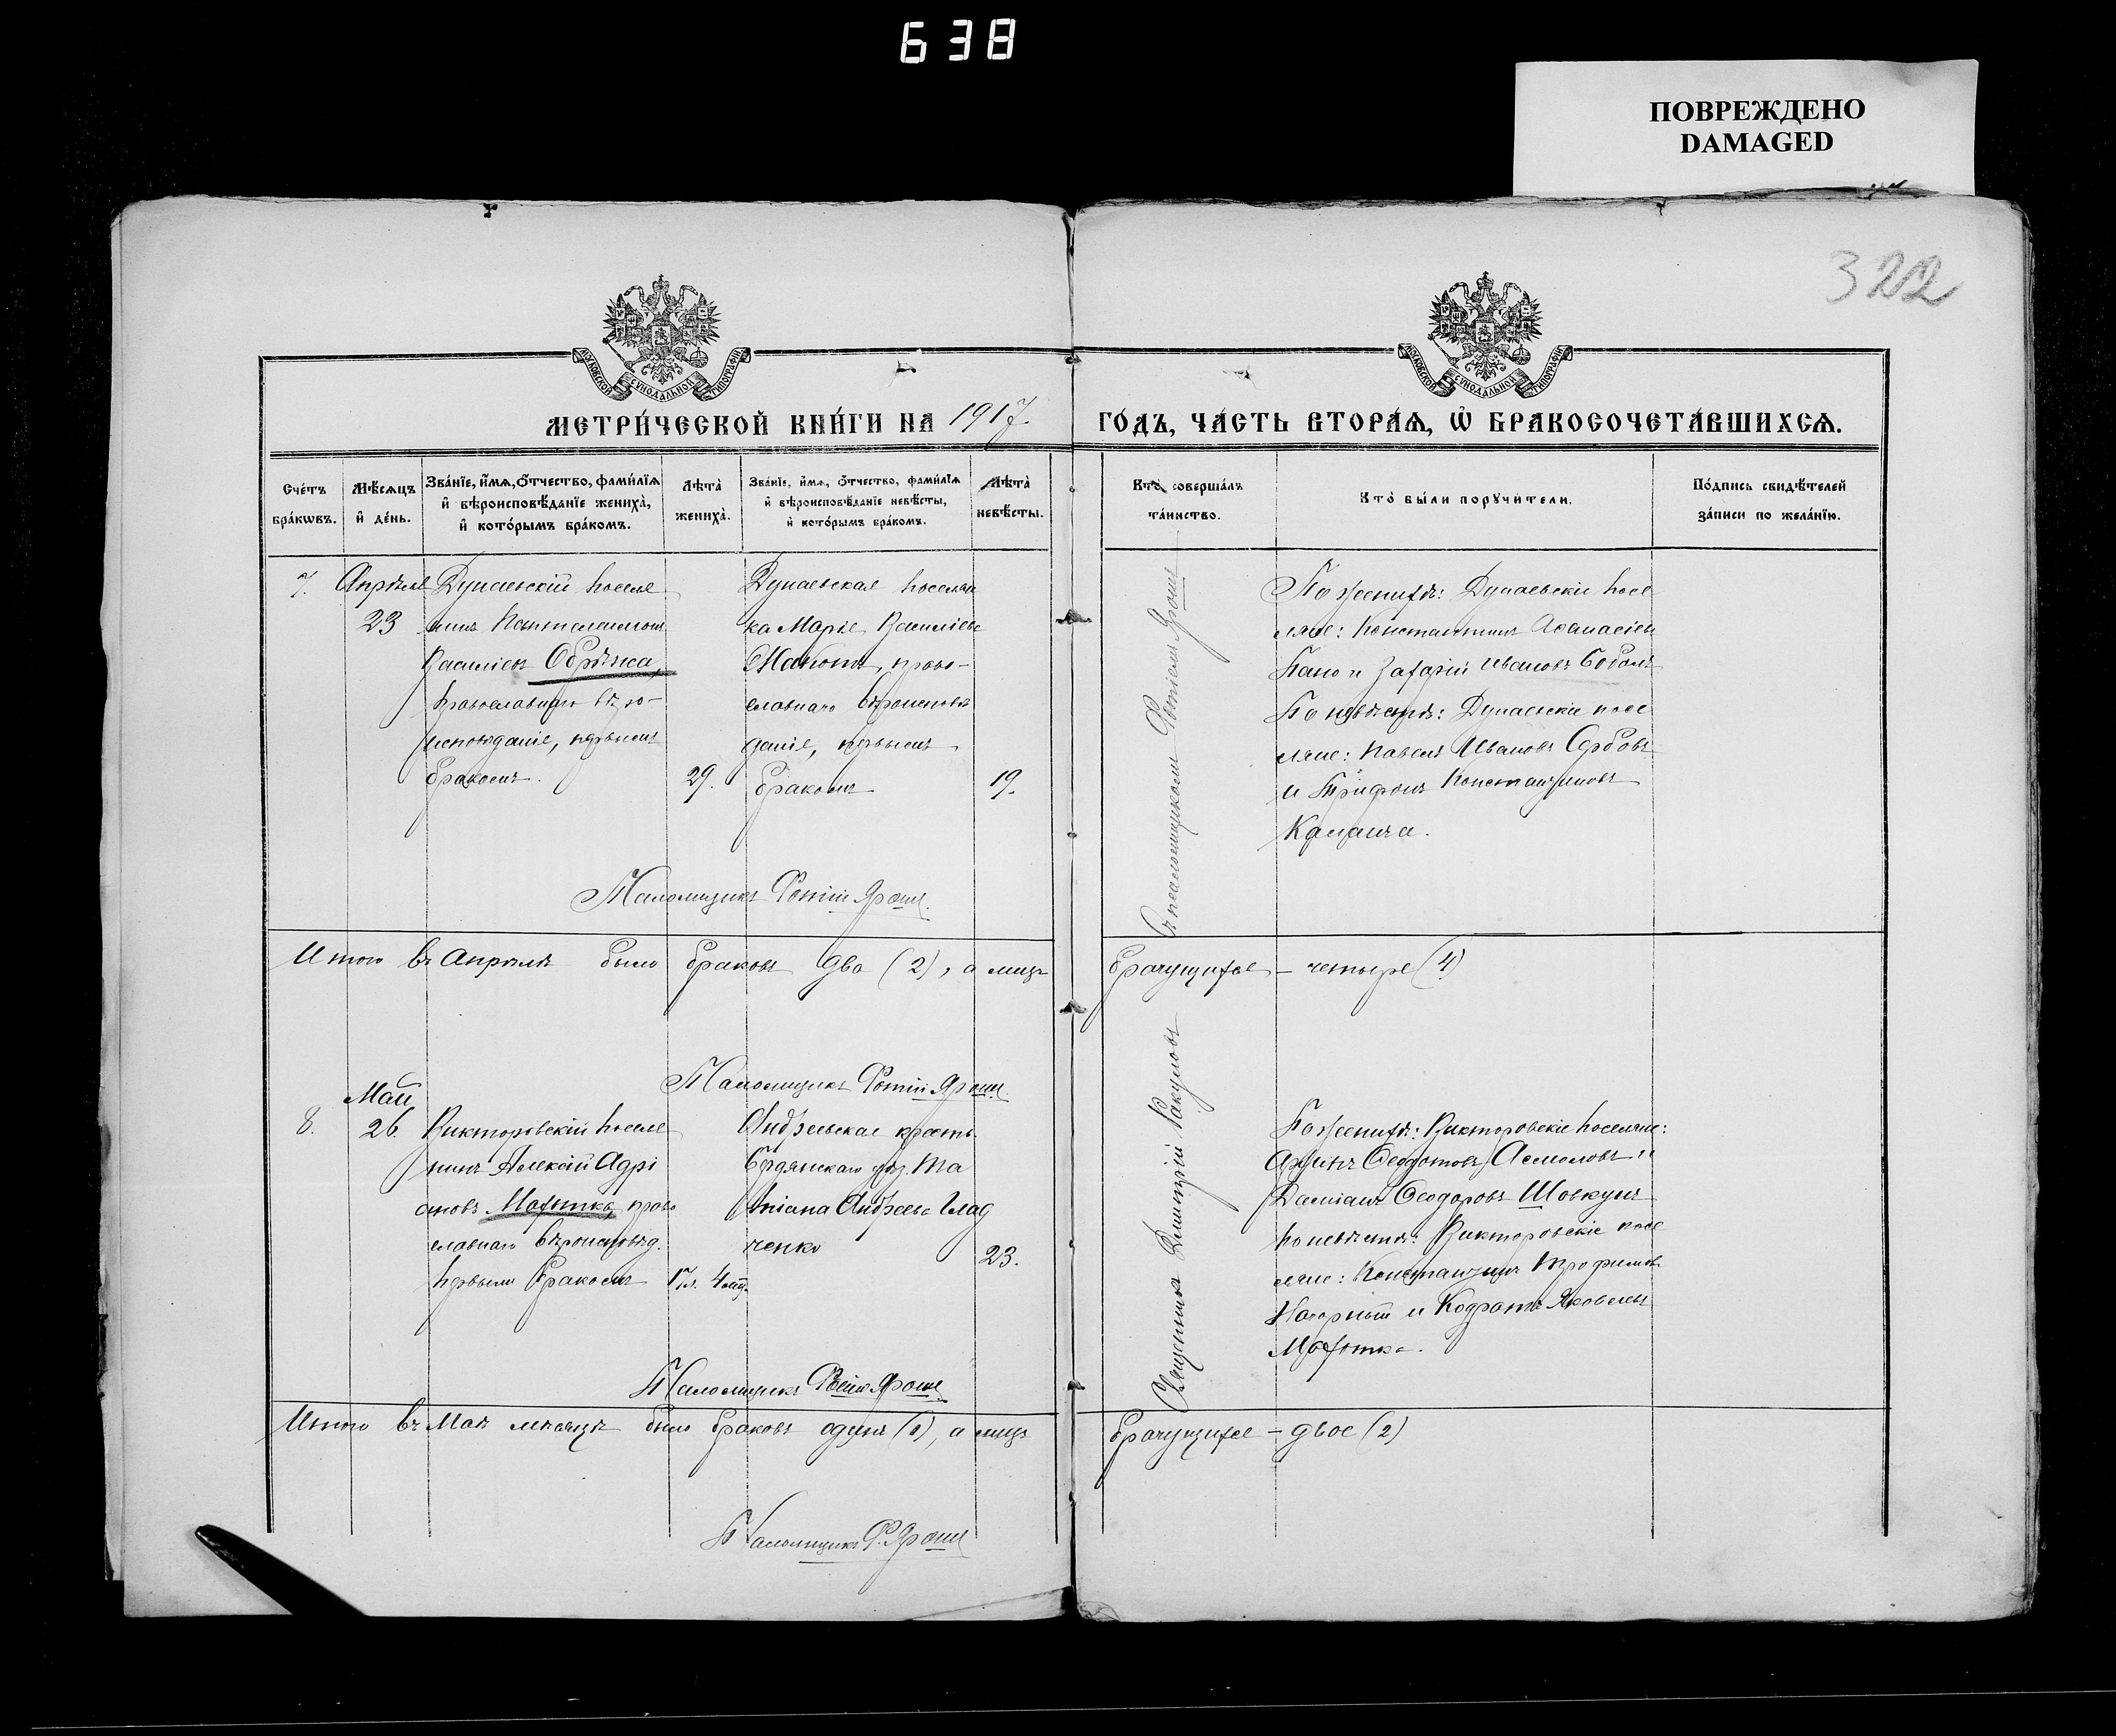 638
ПОВРЕЖДЕНО
DAMAGED
322
МОСКОВСКОЙ СѴНОДАЛЬНОЙ ТИПОГРАФІИ
МОСКОВСКОЙ СѴНОДАЛЬНОЙ ТИПОГРАФІИ
МЕТРИ́ЧЕСКОЙ КНИ́ГИ НА 1917
ГО́ДЪ, ЧА́СТЬ ВТОРА́Ѧ, Ѡ҆ БРАКОСОЧЕТА́ВШИХСѦ.
Сче́тъ
бра́кѡвъ.
Мѣ́сѧцъ
и҆ де́нь.
Зва́нїе, и҆́мѧ, о҆́тчество, фами́лїѧ
и҆ вѣроисповѣ́данїе жениха̀,
и҆ кото́рымъ бра́комъ.
Лѣта̀
жениха̀.
Зва́нїе, и҆́мѧ, о҆́тчество, фами́лїѧ
и҆ вѣроисповѣ́данїе невѣ́сты,
и҆ кото́рымъ бра́комъ.
Лѣта̀
невѣ́сты.
Кто̀ соверша́лъ
та́инство.
Кто̀ бы́ли порꙋчи́тели.
По́дпись свидѣ́телей
за́писи по жела́нїю.
7.
Апрѣля
23
Дунаевскій поселя
нинъ Пантелеимонъ
Василіевъ Обрѣжа,
православнаго вѣро-
исповѣданія, первымъ
бракомъ.
29.
Дунаевская поселян
ка Марія Василіева
Макогонъ, право-
славнаго вѣроисповѣ
данія, первымъ
бракомъ
19.
Съ псаломщикомъ Фотіемъ Ярошъ
По женихѣ: Дунаевскіе посе
ляне: Константинъ Аѳанасіевъ
Пано и Захарій Ивановъ Соболь
По невѣстѣ: Дунаевскіе посе
ляне: Павелъ Ивановъ Сербовъ
и Трифонъ Константиновъ
Псаломщикъ Фотій Ярошъ.
Итого въ Апрѣлѣ было браковъ два (2), а лицъ
брачущихся – четыре (4)
Псаломщикъ Фотій Ярошъ.
8.
Май
26.
Викторовскій поселя
нинъ Алексій Адрі
ановъ Махотка, право
славнаго вѣроисповѣд.
первымъ бракомъ
17 л. 4 мѣс.
Андреевская крест.
Бердянскаго уѣз. Та
тіана Андреева Глад
ченко
23.
Священникъ Викторовскіе поселяне:
По женихѣ: Викторовскіе поселяне:
Ѳеодотовъ Асмоловъ и
Даміанъ Ѳеодоровъ Шовкунъ
по невѣстѣ: Викторовскіе посе
ляне: Константинъ Трофимов.
Нагорный и Кодратъ Яковлевъ
Махотка.
Псаломщикъ Фотій Ярошъ
Итого въ Маѣ мѣсяцѣ было браковъ одинъ (1), а лицъ
брачущихся – двое (2)
Псаломщикъ Ф. Ярошъ